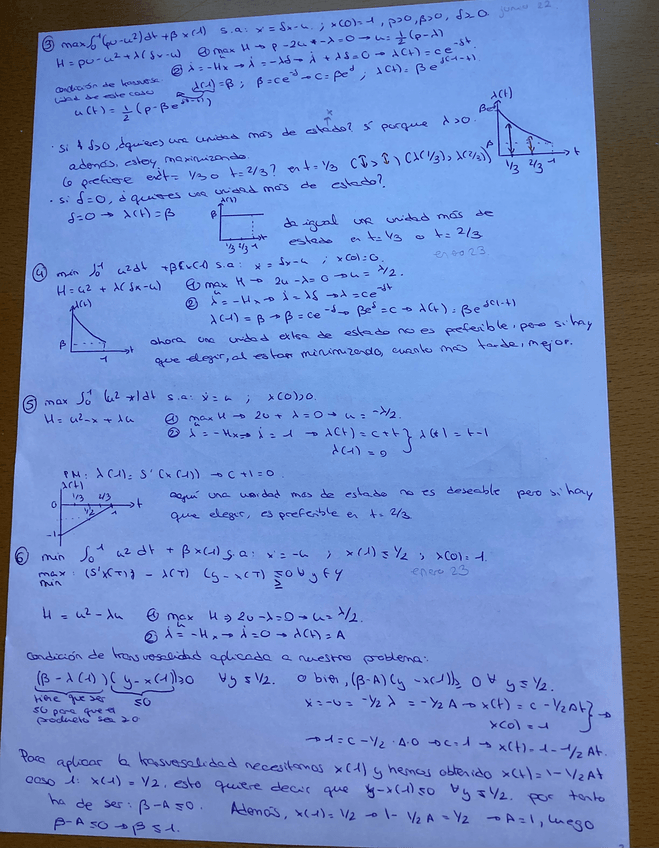 ③ max ∫₀¹ (pu-u²)dt + βx(1) s.a: ẋ = δx-u, ; x(0)=1, p>0, β>0, δ≥0. junio 22
H = pu-u²+λ(δx-u) ① max H → p-2u-λ=0 → u=½(p-λ)
② λ̇=-Hx → λ̇ = -λδ → λ̇ + λδ=0 → λ(t) = ce^-δt
condición de transversa
lidad de este caso λ(1)=β ; β=ce^-δ → c=βe^δ ; λ(t)=βe^-δ(t-1)
u(t) = ½ (p-βe^δ(1-t))
· si δ>0, ¿quieres una unidad más de estado? Sí porque λ>0.
además, estoy maximizando.
Lo prefiere en t=1/3 o t=2/3? en t=1/3 (λ(1/3)>λ(2/3))
λ(t)
β
1/3 2/3 1 t
· si δ=0, ¿quieres una unidad más de estado?
δ=0 → λ(t)=β
λ(t)
β
1/3 2/3 1 t
da igual una unidad más de
estado en t=1/3 o t=2/3
enero 23
④ min ∫₀¹ u²dt + βx(1) s.a: ẋ = δx-u ; x(0)=0.
H=u² + λ(δx-u) ① max H → 2u-λ=0 → u=λ/2.
② λ̇=-Hx → λ̇=λδ → λ=ce^-δt
λ(1)=β → β=ce^-δ → βe^δ=c → λ(t)=βe^δ(1-t)
λ(t)
β
1 t
ahora una unidad extra de estado no es preferible, pero si hay
que elegir, al estar minimizando, cuanto más tarde, mejor.
⑤ max ∫₀¹ (u²-x)dt s.a: ẋ=u ; x(0)>0.
H=u²-x+λu ① max H → 2u+λ=0 → u=-λ/2.
② λ̇=-Hx → λ̇=1 → λ(t)=c+t } λ(t)=t-1
λ(1)=0
PM: λ(1)=S'(x(1)) → c+1=0.
λ(t)
0 1/3 1/2 2/3 1 t
-1
aquí una unidad más de estado no es deseable pero si hay
que elegir, es preferible en t=2/3
⑥ min ∫₀¹ u²dt + βx(1) s.a: ẋ=-u ; x(1)≤1/2 ; x(0)=1.
max/min : (S'x(T)) - λ(T) (y-x(T)) ≤/≥ 0 ∀ y ∈ Y enero 23
H=u²-λu ① max H ⇒ 2u-λ=0 → u=λ/2.
② λ̇=-Hx → λ̇=0 → λ(t)=A
Condición de transversalidad aplicada a nuestro problema:
(β-λ(1))(y-x(1))≥0 ∀y≤1/2. o bien, (β-A)(y-x(1))≥0 ∀ y≤1/2.
tiene que ser
≤0 para que el
producto sea ≥0
≤0
ẋ=-u=-1/2 λ=-1/2 A → x(t)=c-1/2At } →
x(0)=1
→ 1=c-1/2·A·0 → c=1 → x(t)=1-1/2At.
Para aplicar la trasvesalidad necesitamos x(1) y hemos obtenido x(t)=1-1/2At
caso 1: x(1)=1/2. esto quiere decir que y-x(1)≤0 ∀y≤1/2. por tanto
ha de ser: β-A≤0. Además, x(1)=1/2 → 1-1/2A=1/2 → A=1, luego
β-A≤0 → β≤1.